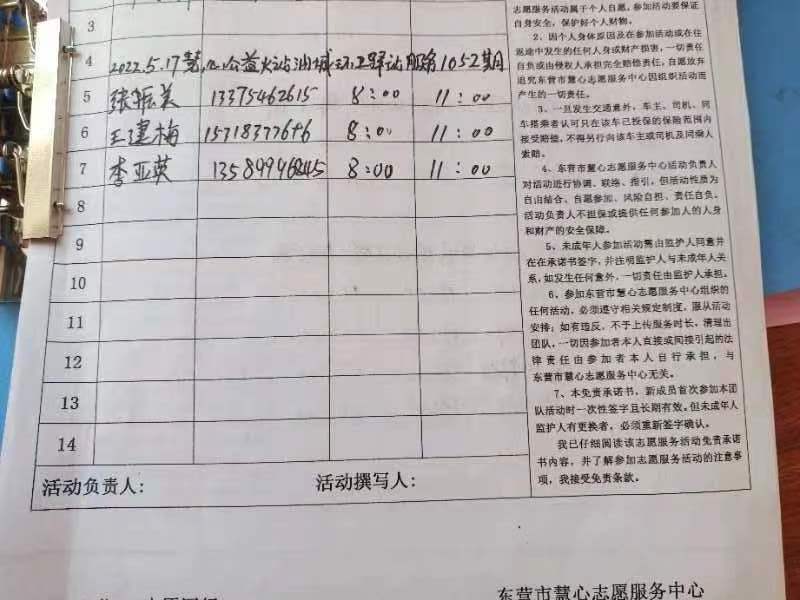 3
4 2022.5.17慧心公益火站油城环卫驿站服务1052期
5 张振美 13375462615 8:00 11:00
6 王建梅 8:00 11:00
7 李亚英 13589996845 8:00 11:00
8
9
10
11
12
13
14
活动负责人: 活动撰写人:
志愿服务活动属于个人自愿,参加活动要保证
自身安全,保护好个人财物。
2、因个人身体原因及在参加活动或在往
返途中发生的任何人身或财产损害,一切责任
自负或由侵权人承担完全赔偿责任,自愿放弃
追究东营市慧心志愿服务中心因组织活动而
产生的一切责任。
3、一旦发生交通意外,车主、司机、同
车搭乘者认可只在该车已投保的保险范围内
接受赔偿,不得另行向该车主或司机及同乘人
索赔。
4、东营市慧心志愿服务中心活动负责人
对活动进行协调、联络、指引,但活动性质为
自由结合、自愿参加、风险自担、责任自负。
活动负责人不担保或提供任何参加人的人身
和财产的安全保障。
5、未成年人参加活动需由监护人同意并
在在承诺书签字,并注明监护人与未成年人关
系,如发生任何意外,一切责任由监护人承担。
6、参加东营市慧心志愿服务中心组织的
任何活动,必须遵守相关规定制度,服从活动
安排;如有违反,不予上传服务时长,清理出
团队,一切因参加者本人直接或间接引起的法
律责任由参加者本人自行承担,与
东营市慧心志愿服务中心无关。
7、本免责承诺书,新成员首次参加本团
队活动时一次性签字且长期有效。但未成年人
监护人有更换者,必须重新签字确认。
我已仔细阅读该志愿服务活动免责承诺
书内容,并了解参加志愿服务活动的注意事
项,我接受免责条款。
东营市慧心志愿服务中心